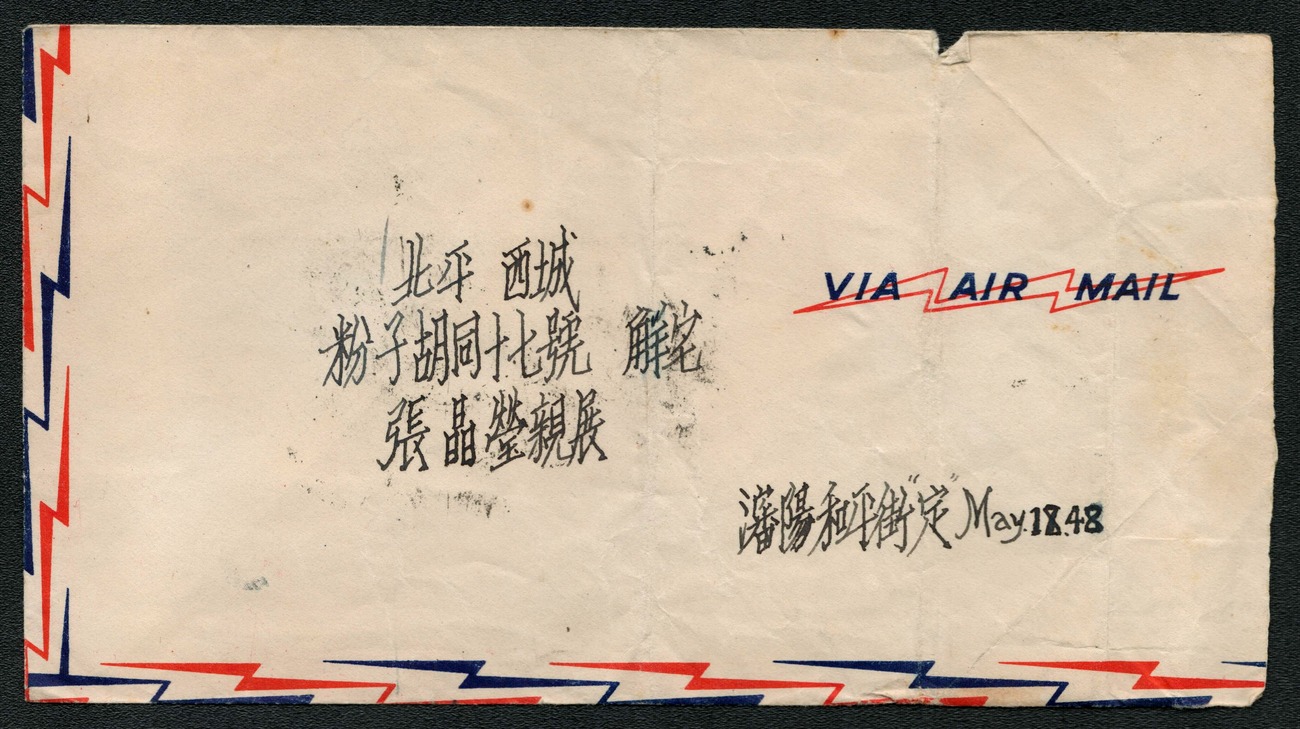 北平 西城
粉子胡同十七號 解宅
張晶瑩親展
VIA AIR MAIL
瀋陽和平街"定" May.18.48